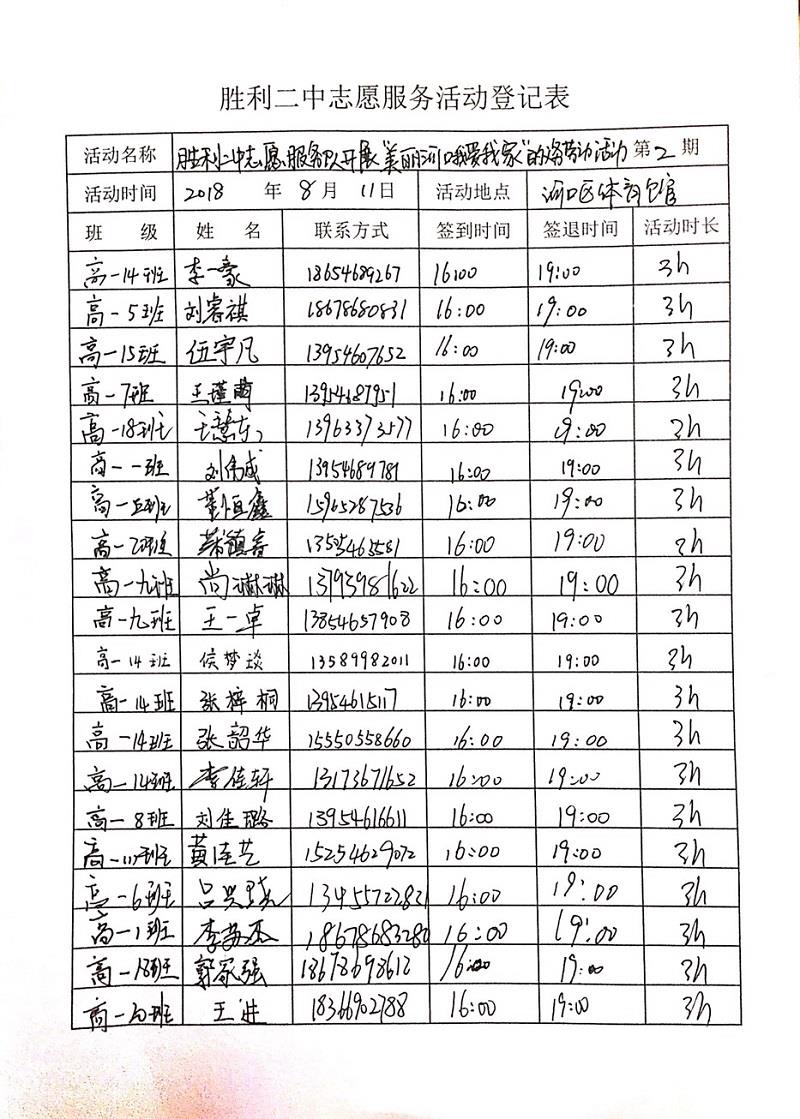 胜利二中志愿服务活动登记表
活动名称 胜利二中志愿服务队开展"美丽河口我爱我家"的义务劳动活动 第2期
活动时间 2018 年 8 月 11 日 活动地点 河口区体育馆
班 级 姓 名 联系方式 签到时间 签退时间 活动时长
高一14班 李一豪 18654689267 16:00 19:00 3h
高一5班 刘睿祺 18678680831 16:00 19:00 3h
高一15班 伍宇凡 13954607652 16:00 19:00 3h
高一7班 王瑾 13954687951 16:00 19:00 3h
高一18班 13963373577 16:00 19:00 3h
高一一班 刘伟成 13954689781 16:00 19:00 3h
高一五班 董恒鑫 15965287536 16:00 19:00 3h
高一2班 16:00 19:00 3h
高一九班 尚琳琳 13793981622 16:00 19:00 3h
高一九班 王一卓 13854657908 16:00 19:00 3h
高一14班 侯梦谈 13589982011 16:00 19:00 3h
高一14班 张梓桐 13954615117 16:00 19:00 3h
高一14班 张韶华 15550558660 16:00 19:00 3h
高一14班 李佳轩 13173671652 16:00 19:00 3h
高一8班 刘佳璐 13954616611 16:00 19:00 3h
高一 班 黄佳艺 15254629072 16:00 19:00 3h
高一6班 吕 16:00 19:00 3h
高一1班 李 杰 16:00 19:00 3h
高一18班 郭家强 18678698612 16:00 19:00 3h
高一20班 王进 18366902788 16:00 19:00 3h